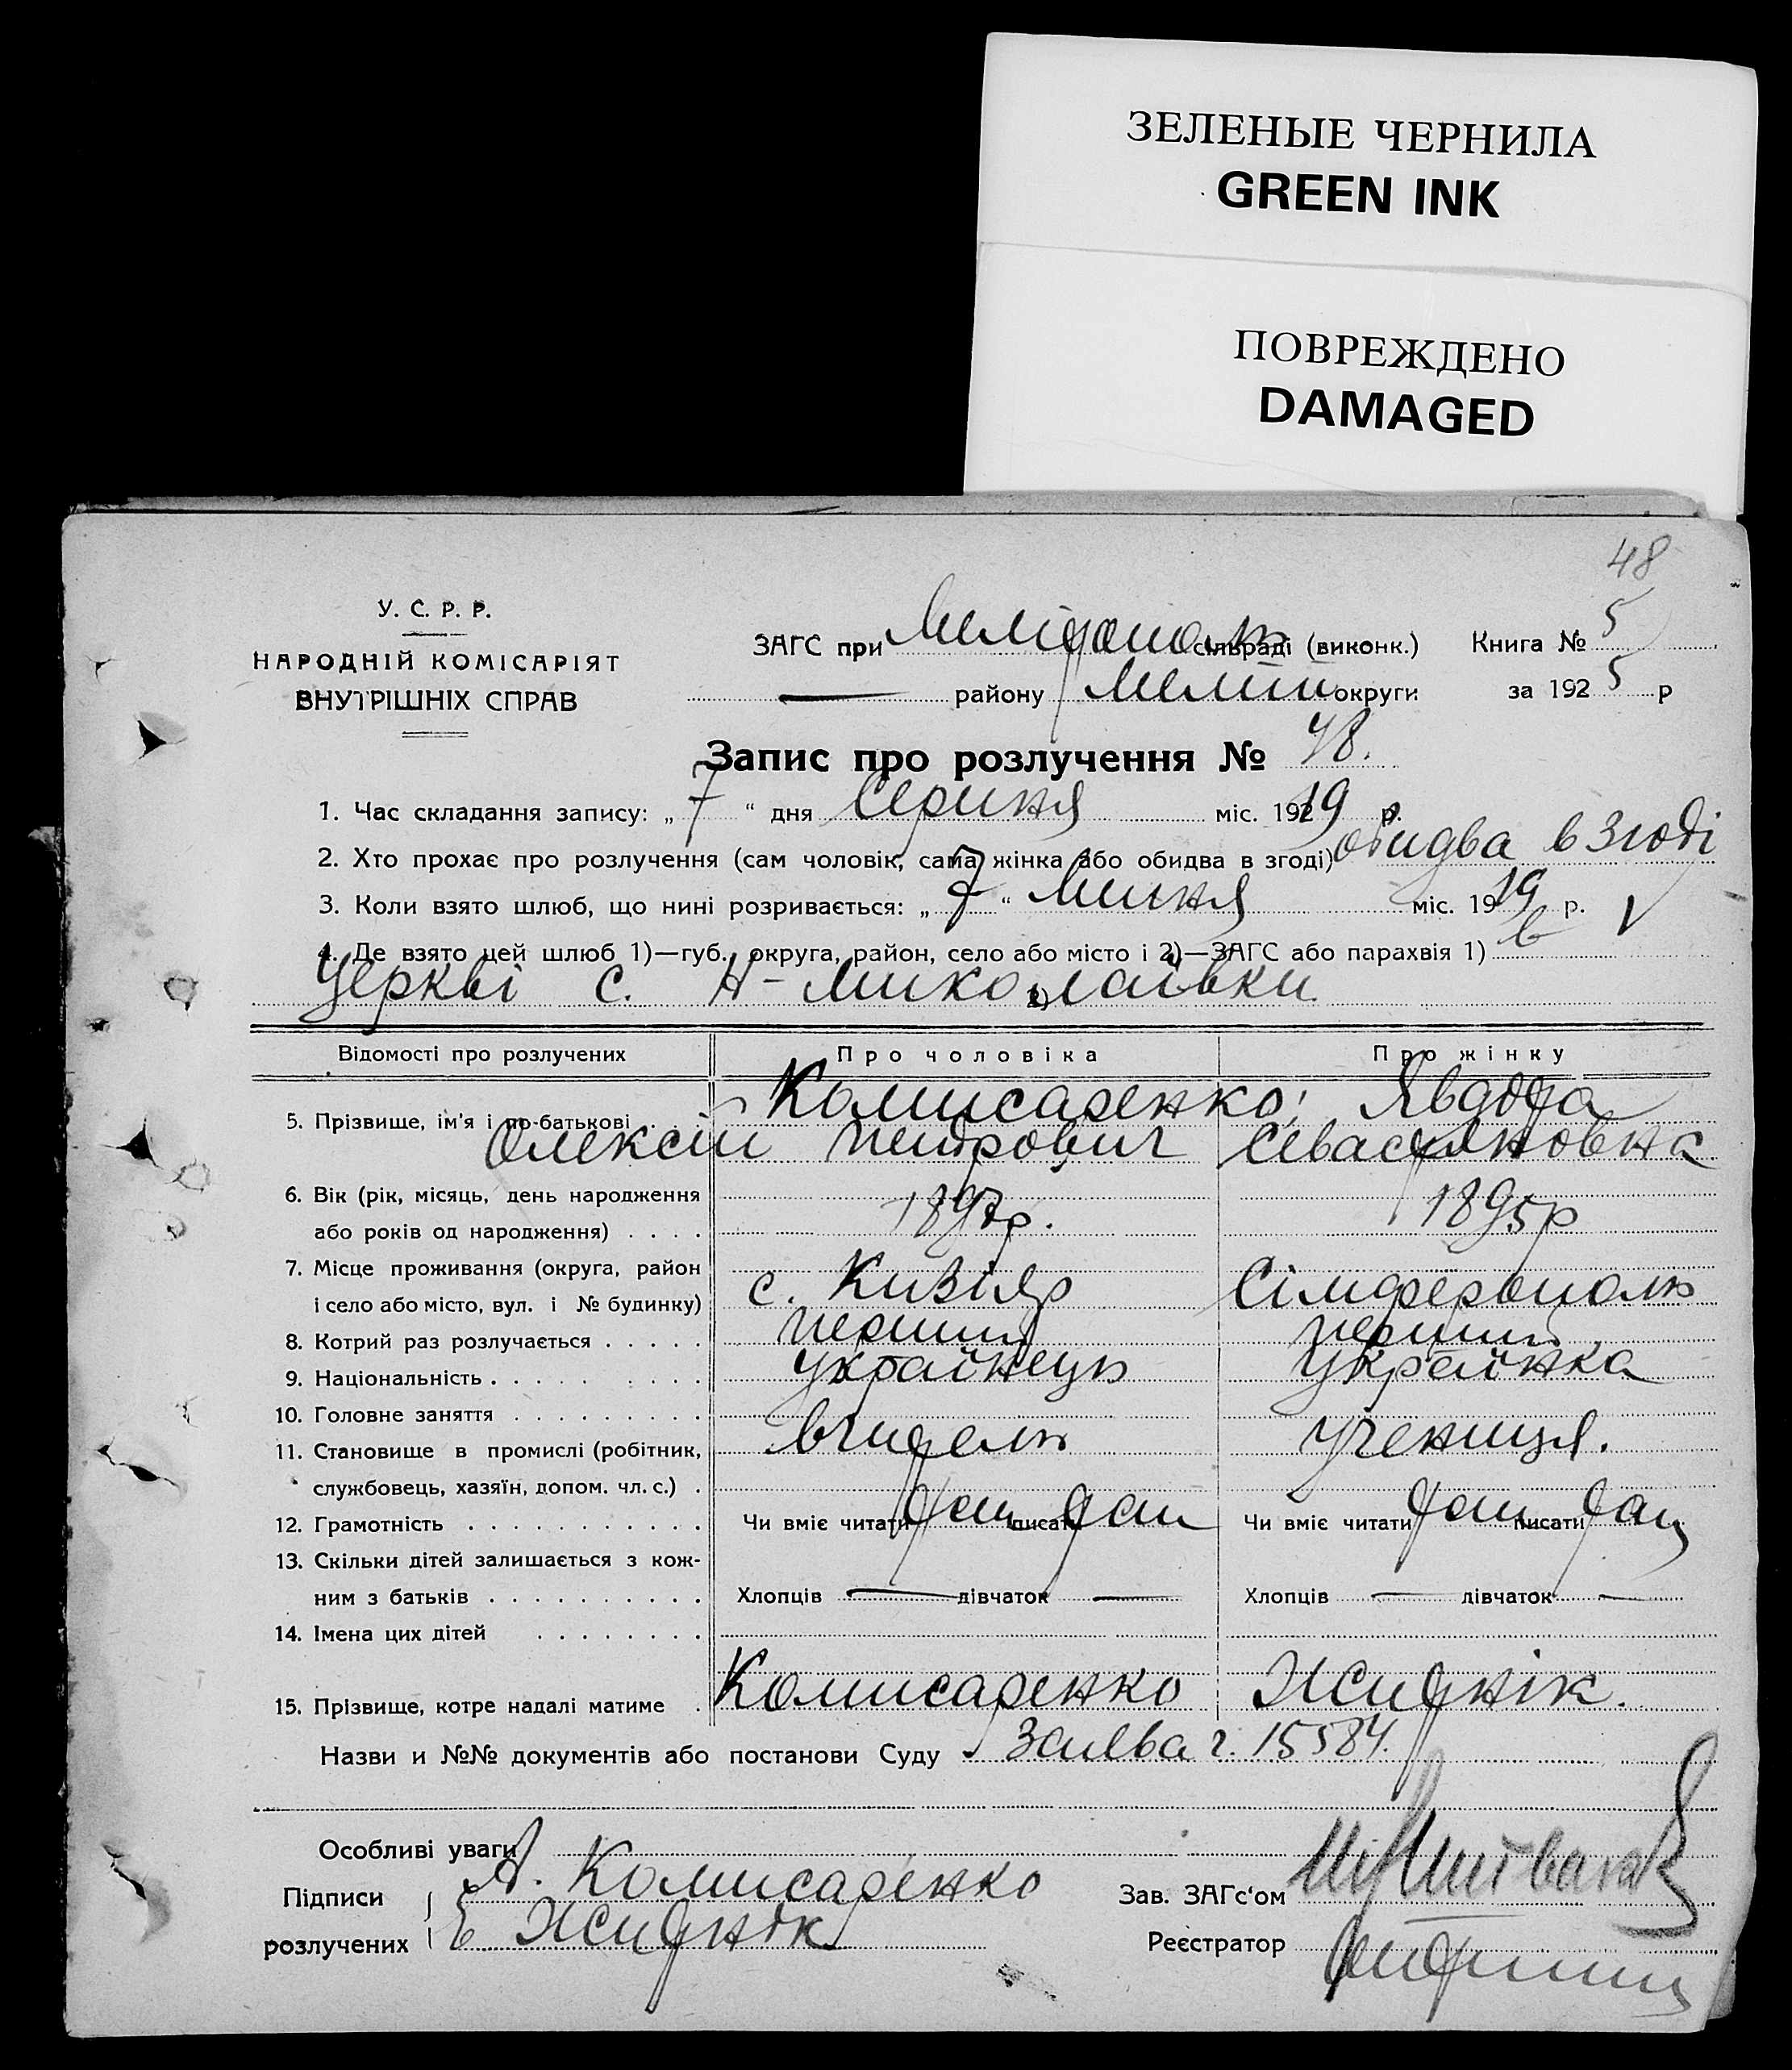 ЗЕЛЕНЫЕ ЧЕРНИЛА
GREEN INK
ПОВРЕЖДЕНО
DAMAGED
48
У. С. Р. Р.
НАРОДНІЙ КОМІСАРІЯТ
ВНУТРІШНІХ СПРАВ
ЗАГС при Мелітополь сільраді (виконк.) Книга № 5
— району Меліт округи за 192 5 р
Запис про розлучення № 48.
1. Час складання запису: „ 7 “ дня Серпня міс. 192 р.
2. Хто прохає про розлучення (сам чоловік, сама жінка або обидва в згоді) обидва в згоді
3. Коли взято шлюб, що нині розривається: „ 7 “ міс. 19 19 р. V
4. Де взято цей шлюб 1)—губ., округа, район, село або місто і 2)—ЗАГС або парахвія 1) в
Церкві с. Н-Миколаівки
2)
Відомості про розлучених Про чоловіка Про жінку
5. Прізвище, ім'я і по-батькові . . Комисаренко, Явдоха
Олексій Петрович Севастяновна
6. Вік (рік, місяць, день народження
або років од народження) . . . . 1897р. 1895р
7. Місце проживання (округа, район
і село або місто, вул. і № будинку) с. Кизіяр Сімферополь
8. Котрий раз розлучається . . . . . перший перший
9. Національність . . . . . . . . . українець українка
10. Головне заняття . . . . . . . . .
11. Становище в промислі (робітник, вчитель учениця.
службовець, хазяїн, допом. чл. с.) .
12. Грамотність . . . . . . . . . . . Чи вміє читати так писати так Чи вміє читати так писати так
13. Скільки дітей залишається з кож-
ним з батьків . . . . . . . . . . Хлопців — дівчаток — Хлопців — дівчаток —
14. Імена цих дітей . . . . . . . .
15. Прізвище, котре надалі матиме . Комисаренко Житнік.
Назви и №№ документів або постанови Суду Заява ч. 15584.
Особливі уваги
Підписи А. Комисаренко Зав. ЗАГс'ом
розлучених Е Житнік Реєстратор